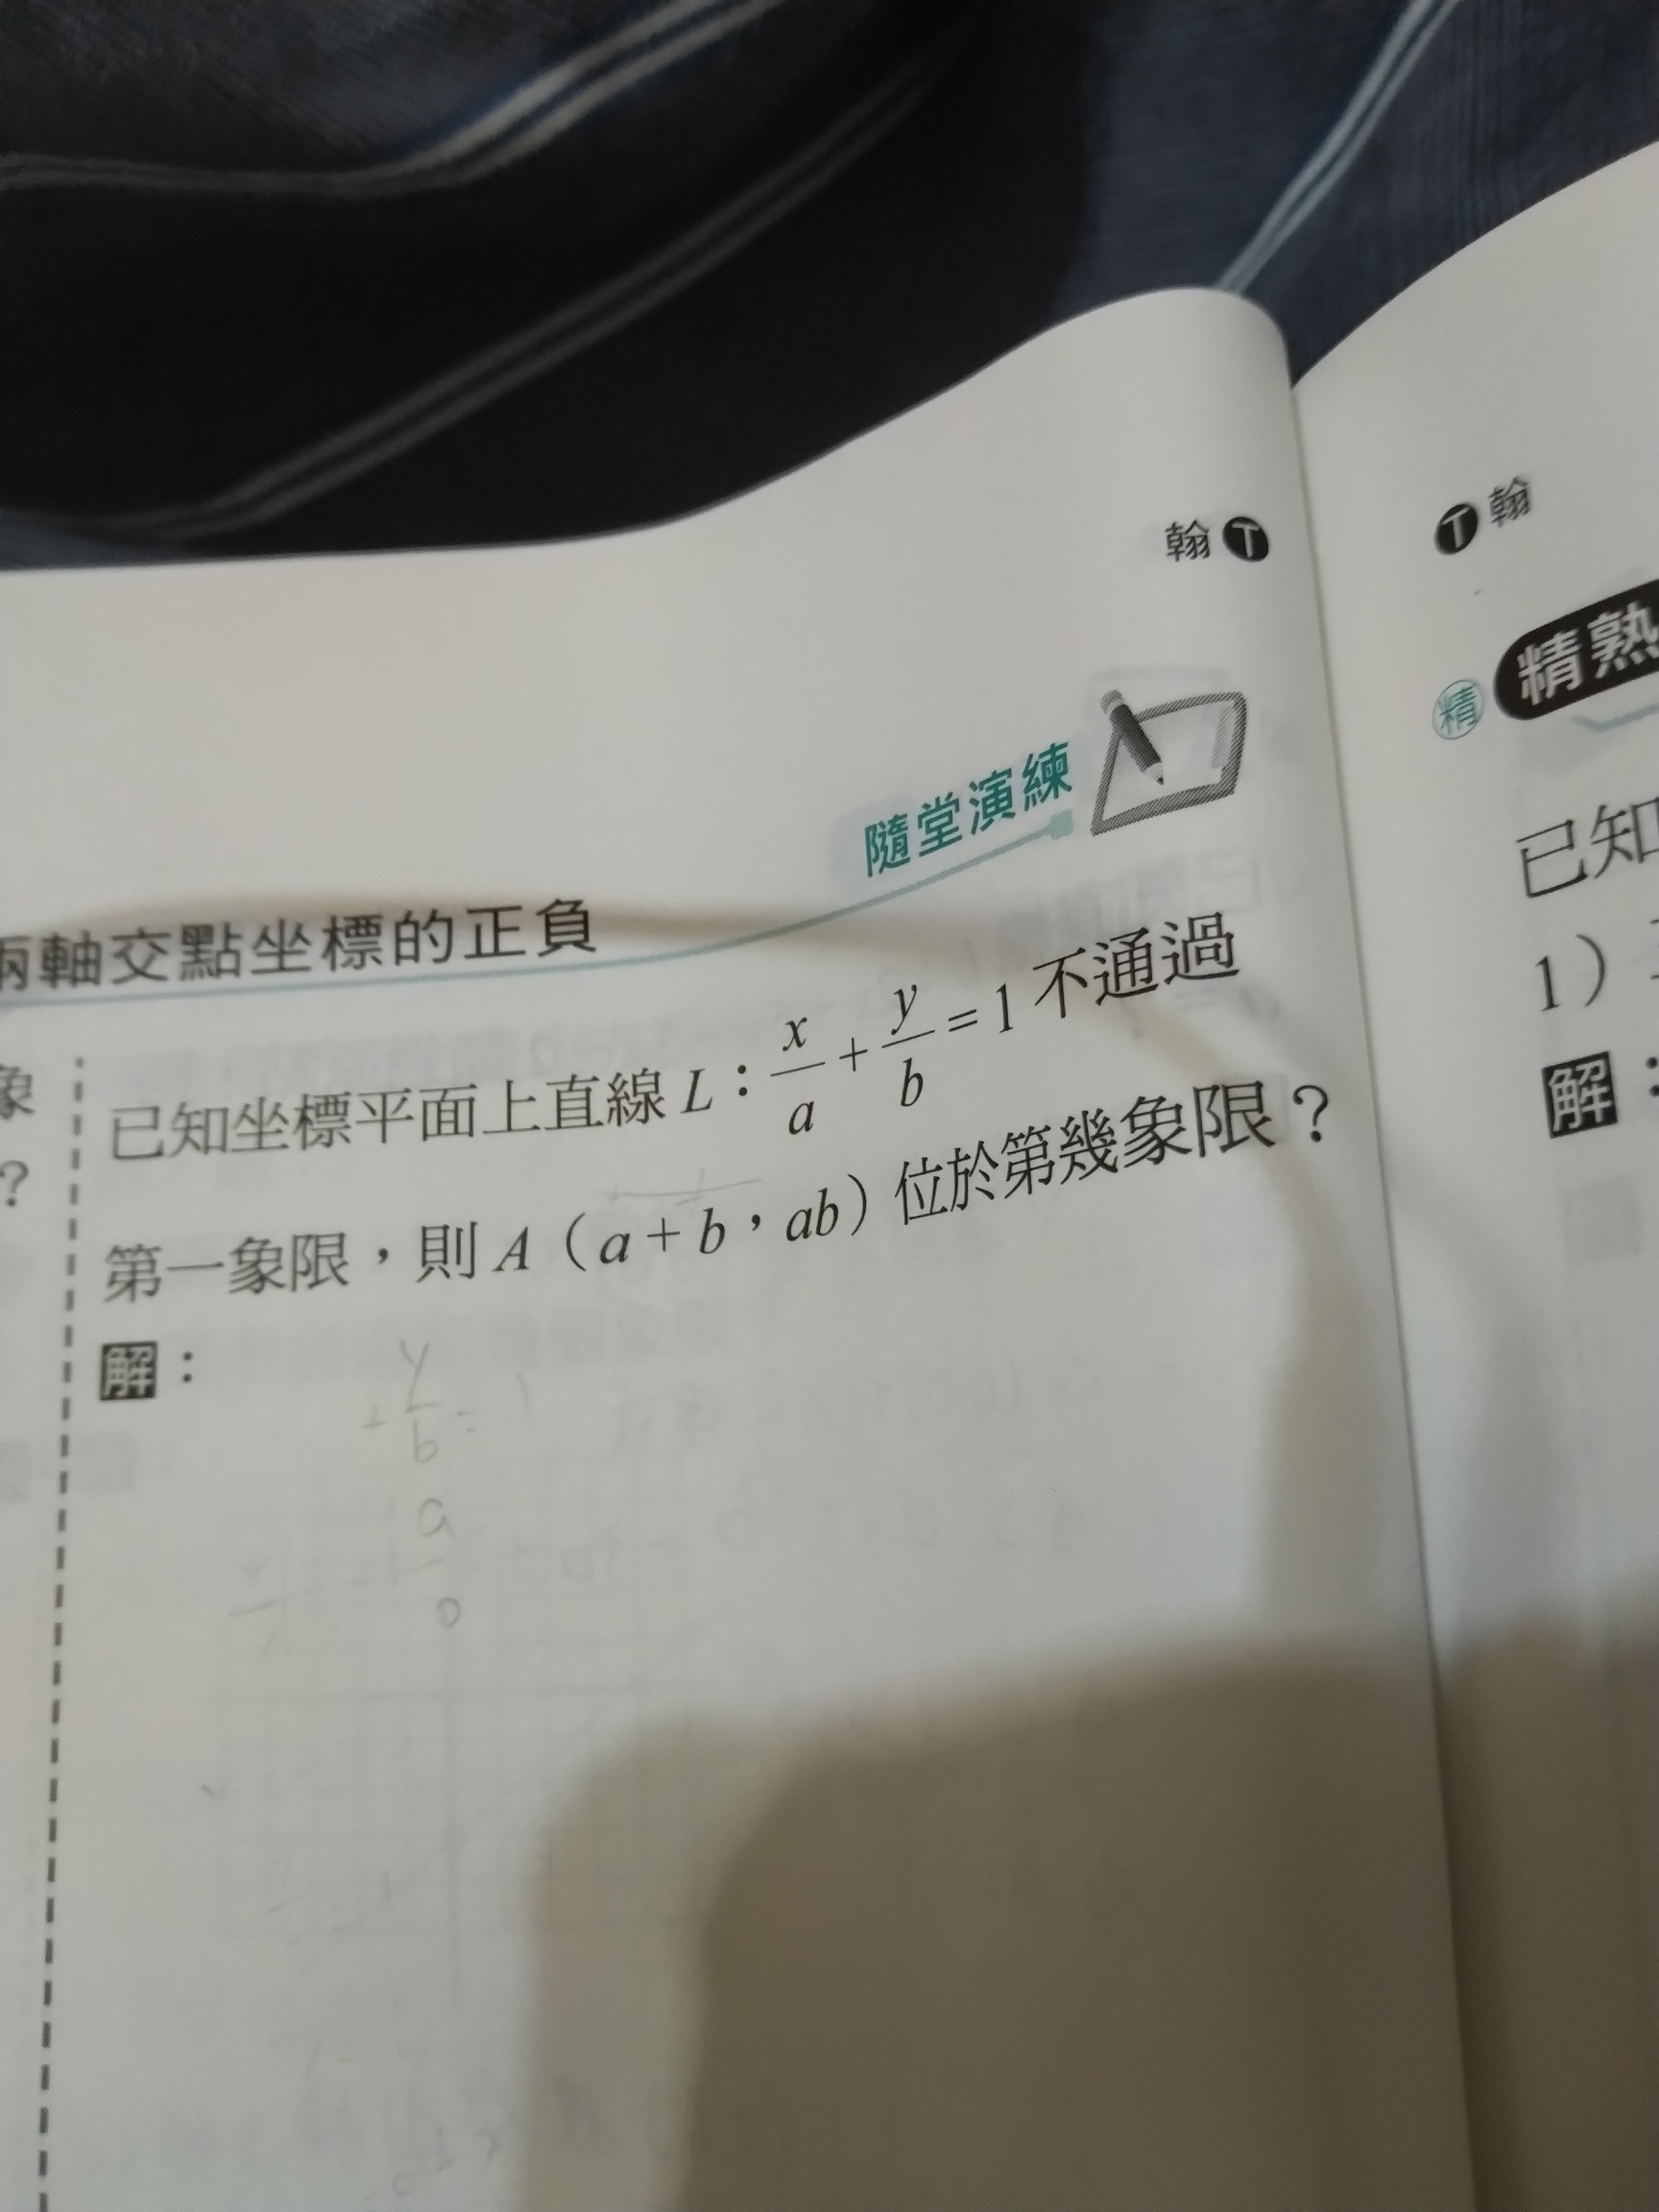 翰 T
T 翰
隨堂演練
兩軸交點坐標的正負
象
?
已知坐標平面上直線 L：x/a + y/b = 1 不通過
第一象限，則 A（a + b，ab）位於第幾象限？
解：
精 精熟
已知
1）
解：